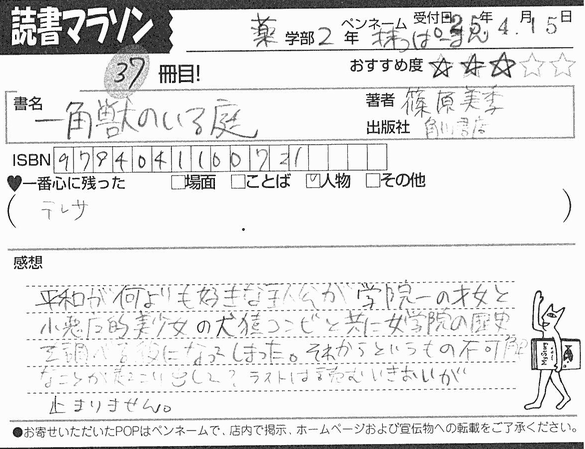 読書マラソン
薬 学部 2 年 ペンネーム 受付日 25年 4月 15日
37 冊目! おすすめ度 ★★★☆☆
書名 一角獣のいる庭 著者 篠原美季
出版社 角川書店
ISBN 9784041100721
♥一番心に残った □場面 □ことば ☑人物 □その他
( テレサ )
感想
平和が何よりも好きな主人公が学院一の才女と
小悪魔的美少女の犬猿コンビと共に女学院の歴史
を調べる役になってしまった。それからというもの不可解
なことが起こり出して? ラストは読むいきおいが
止まりません。
●お寄せいただいたPOPはペンネームで、店内で掲示、ホームページおよび宣伝物への転載をご了承ください。